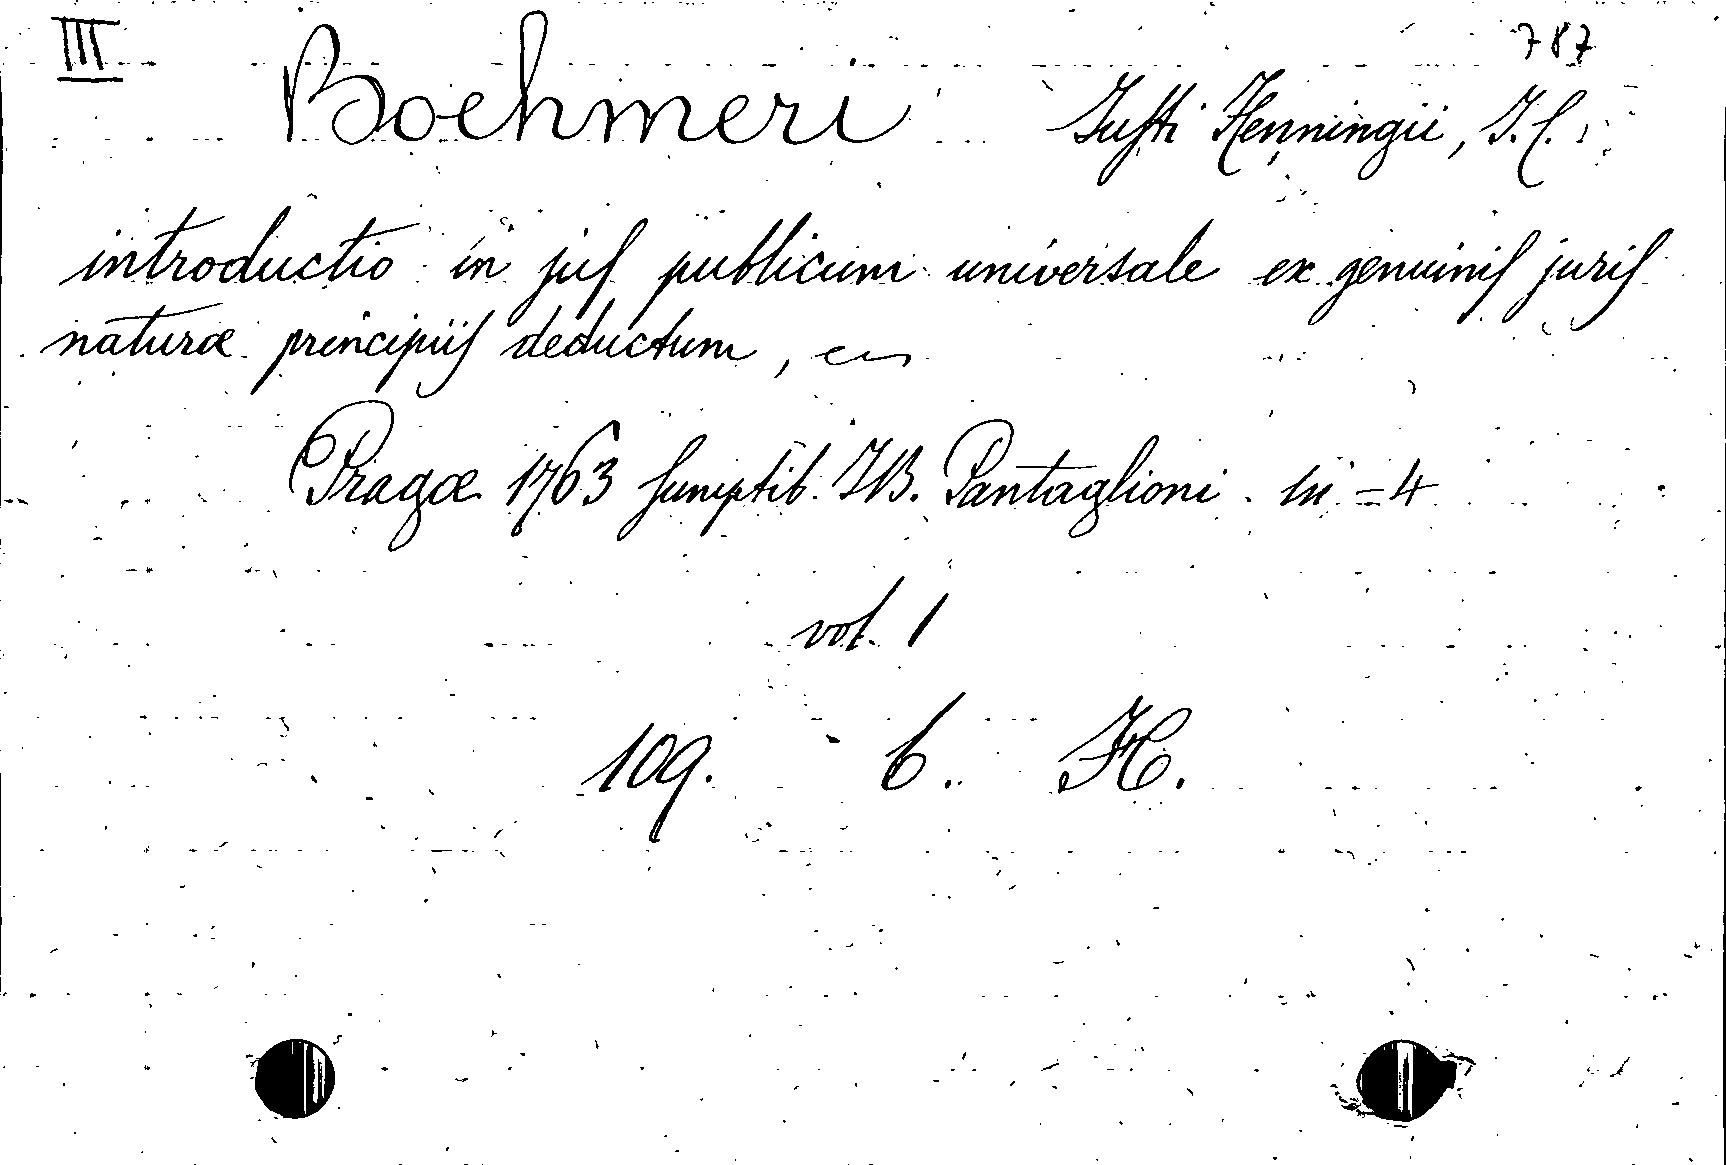 III 787
Boehmeri Iusti Henningii, I. C.
introductio in jus publicum universale ex genuinis juris
naturæ principiis deductum,
Pragæ 1763 sumptib. I.B. Pantaglioni. in = 4
vol. 1
109. b. H.